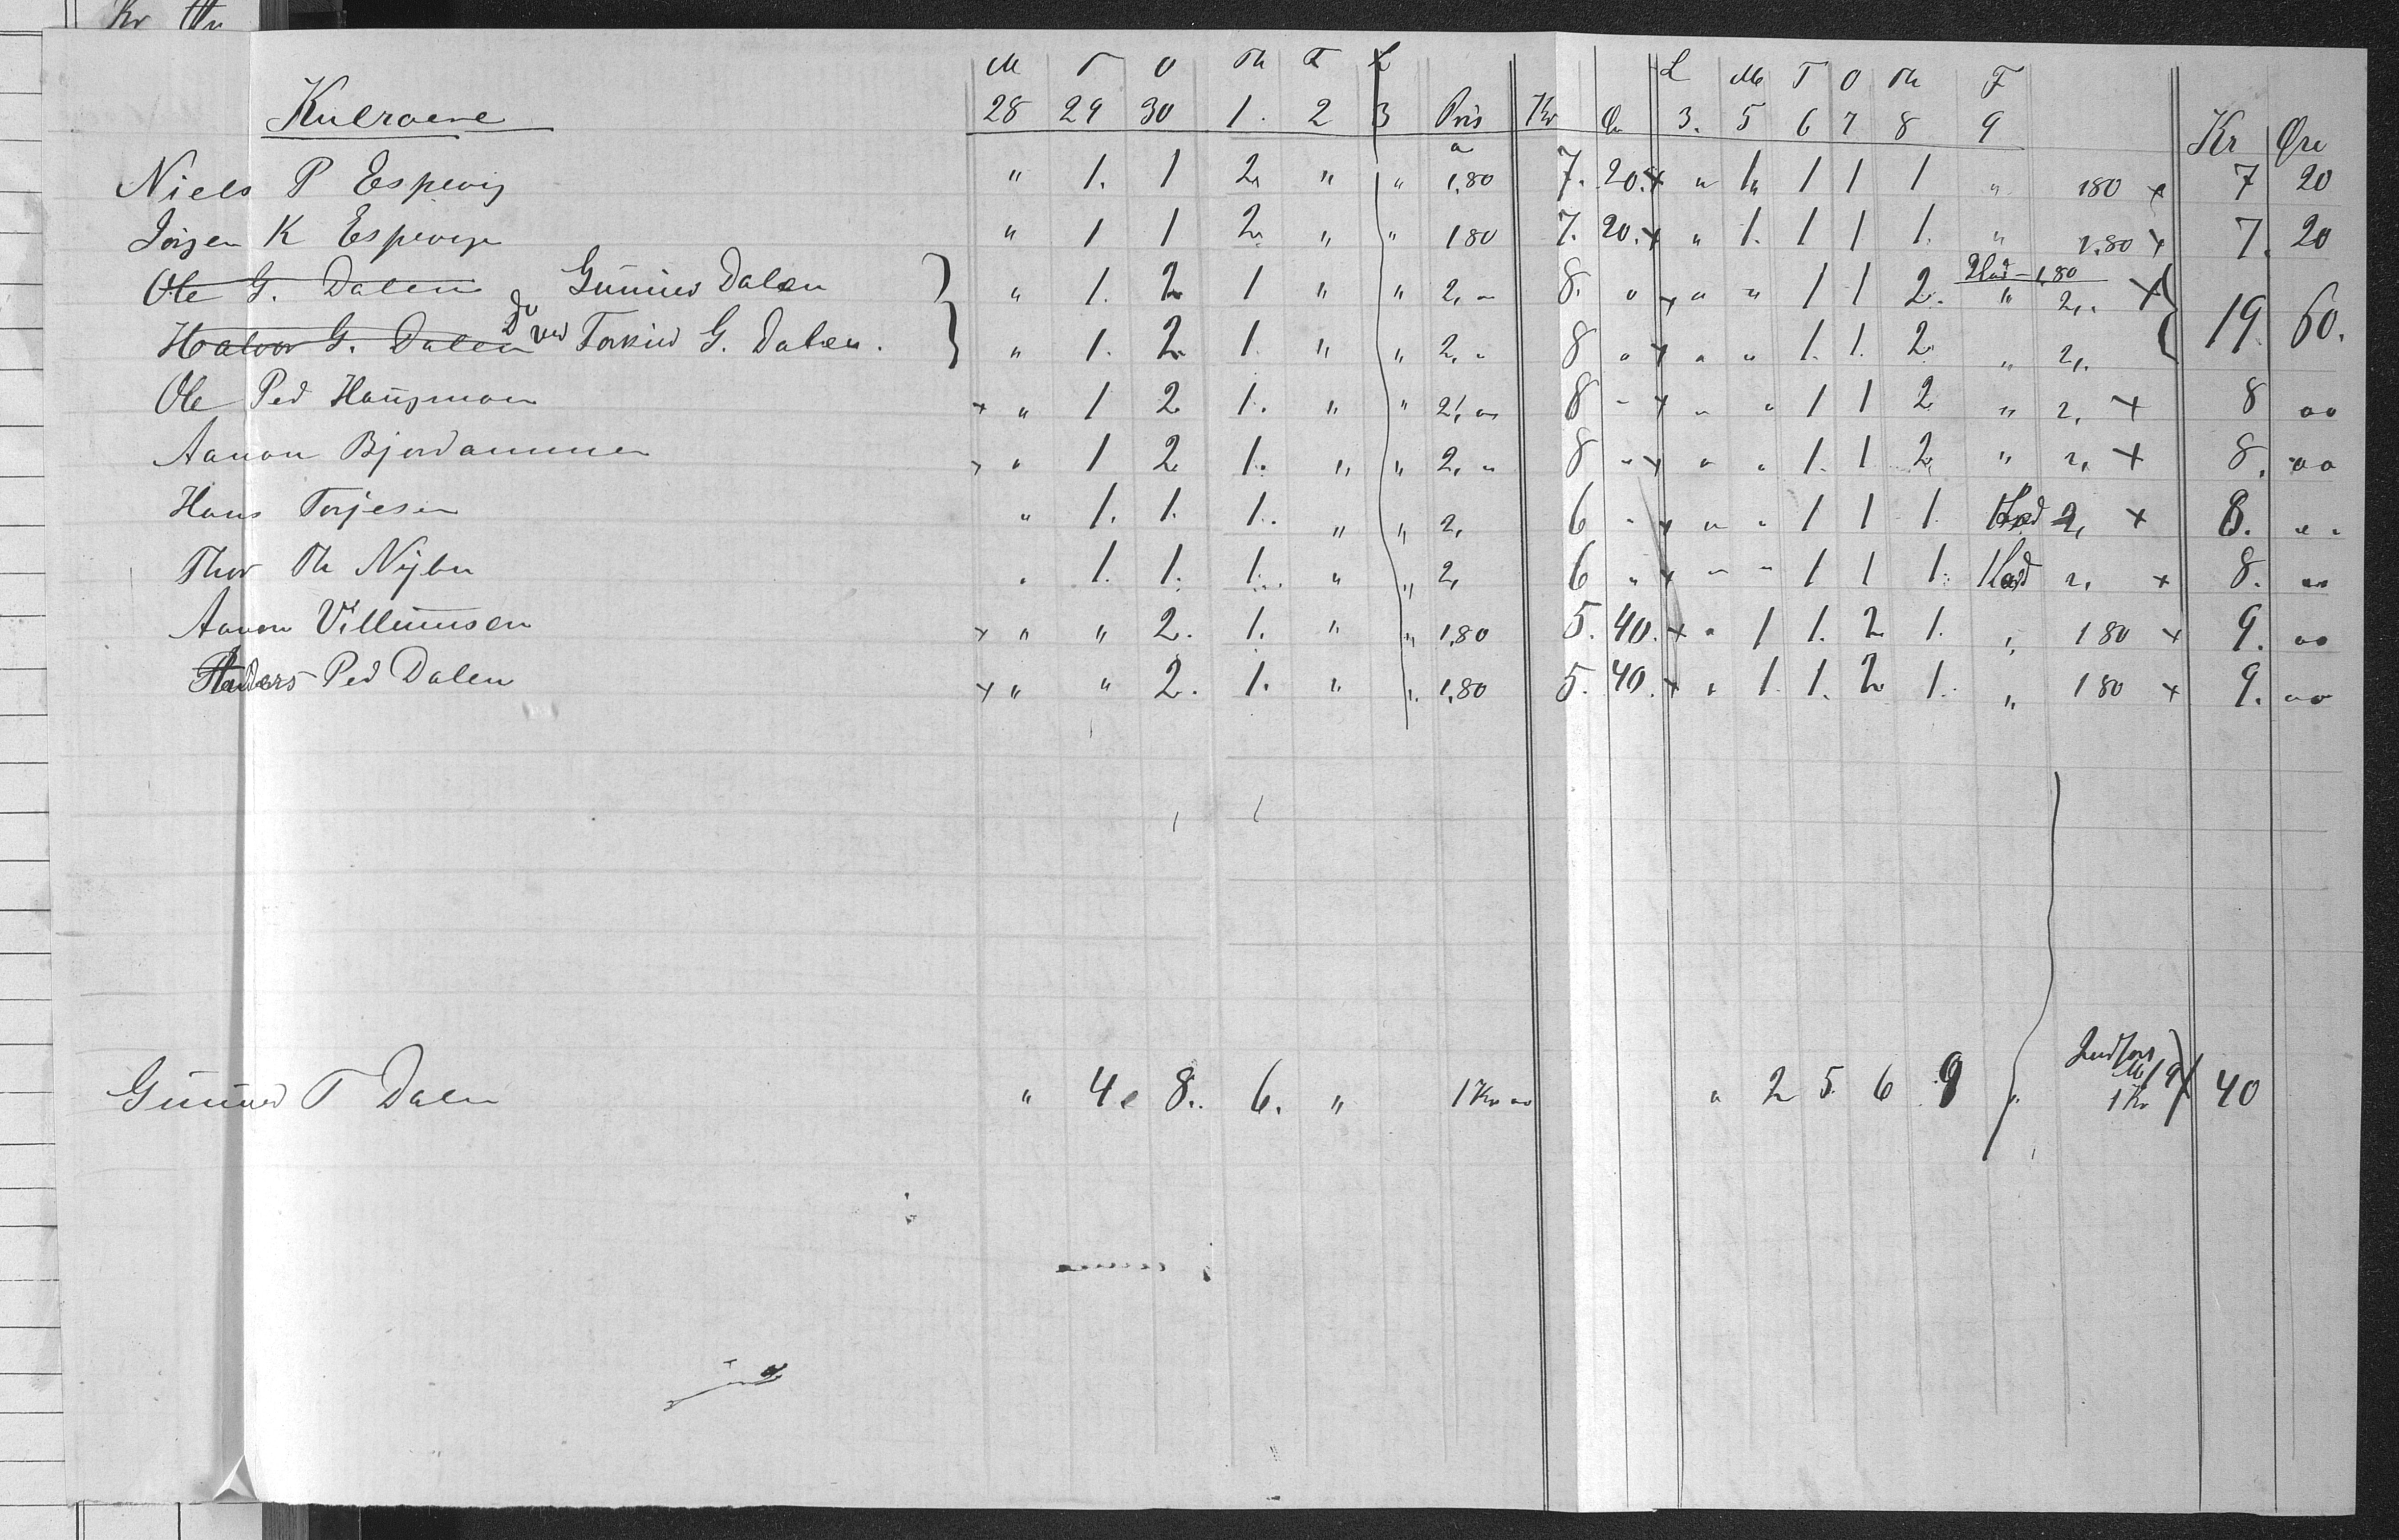 Kr
M T O Th F L L M T O Th F
Kulraene 28 29 30 1. 2 3 Pris Kr Ør 3. 5 6 7 8 9 Kr Øre
Niels P Espevig " 1. 1 2 " " a 1,80 7. 20. x " 1 1 1 1 " 180 x 7 20
Jörgen K Espevig " 1 1 2 " " 180 7. 20. x " 1. 1 1 1. " 1.80 x 7. 20
Ole G. Dalen Gunuld Dalen " 1. 2 1 " " 2, " 8. " x " " 1 1 2. 2 lad - 1,80 " 2,. x 19 60.
Halvor G. Dalen Do ved Torkild G. Dalen. " 1. 2. 1. " " 2, " 8 " x " " 1. 1. 2 " 2,
Ole Ped Haugmoen x " 1 2 1. " " 2, " 8 " x " " 1 1 2 " 2, x 8 "
Aanon Bjordammen x " 1 2. 1. " " 2, " 8 " x " " 1. 1 2, " 2, x 8. "
Hans Torjesen " 1. 1. 1. " " 2, 6 " x " " 1 1 1. 1 Lad 2, x 8. "
Thor Th Nijbu " 1. 1. 1. " " 2, 6 " x " " 1 1 1. 1 Lad 2, x 8. "
Aanon Villumsen x " " 2. 1. " " 1,80 5. 40. x " 1 1. 2 1. " 180 x 9. "
Anders Ped Dalen x " " 2. 1. " " 1,80 5. 40. x " 1. 1. 2 1. " 180 x 9. "
Gunuld T Dalen " 4 8. 6. " 1 Kr " " 2 5. 6 9 " 1 Kr 40